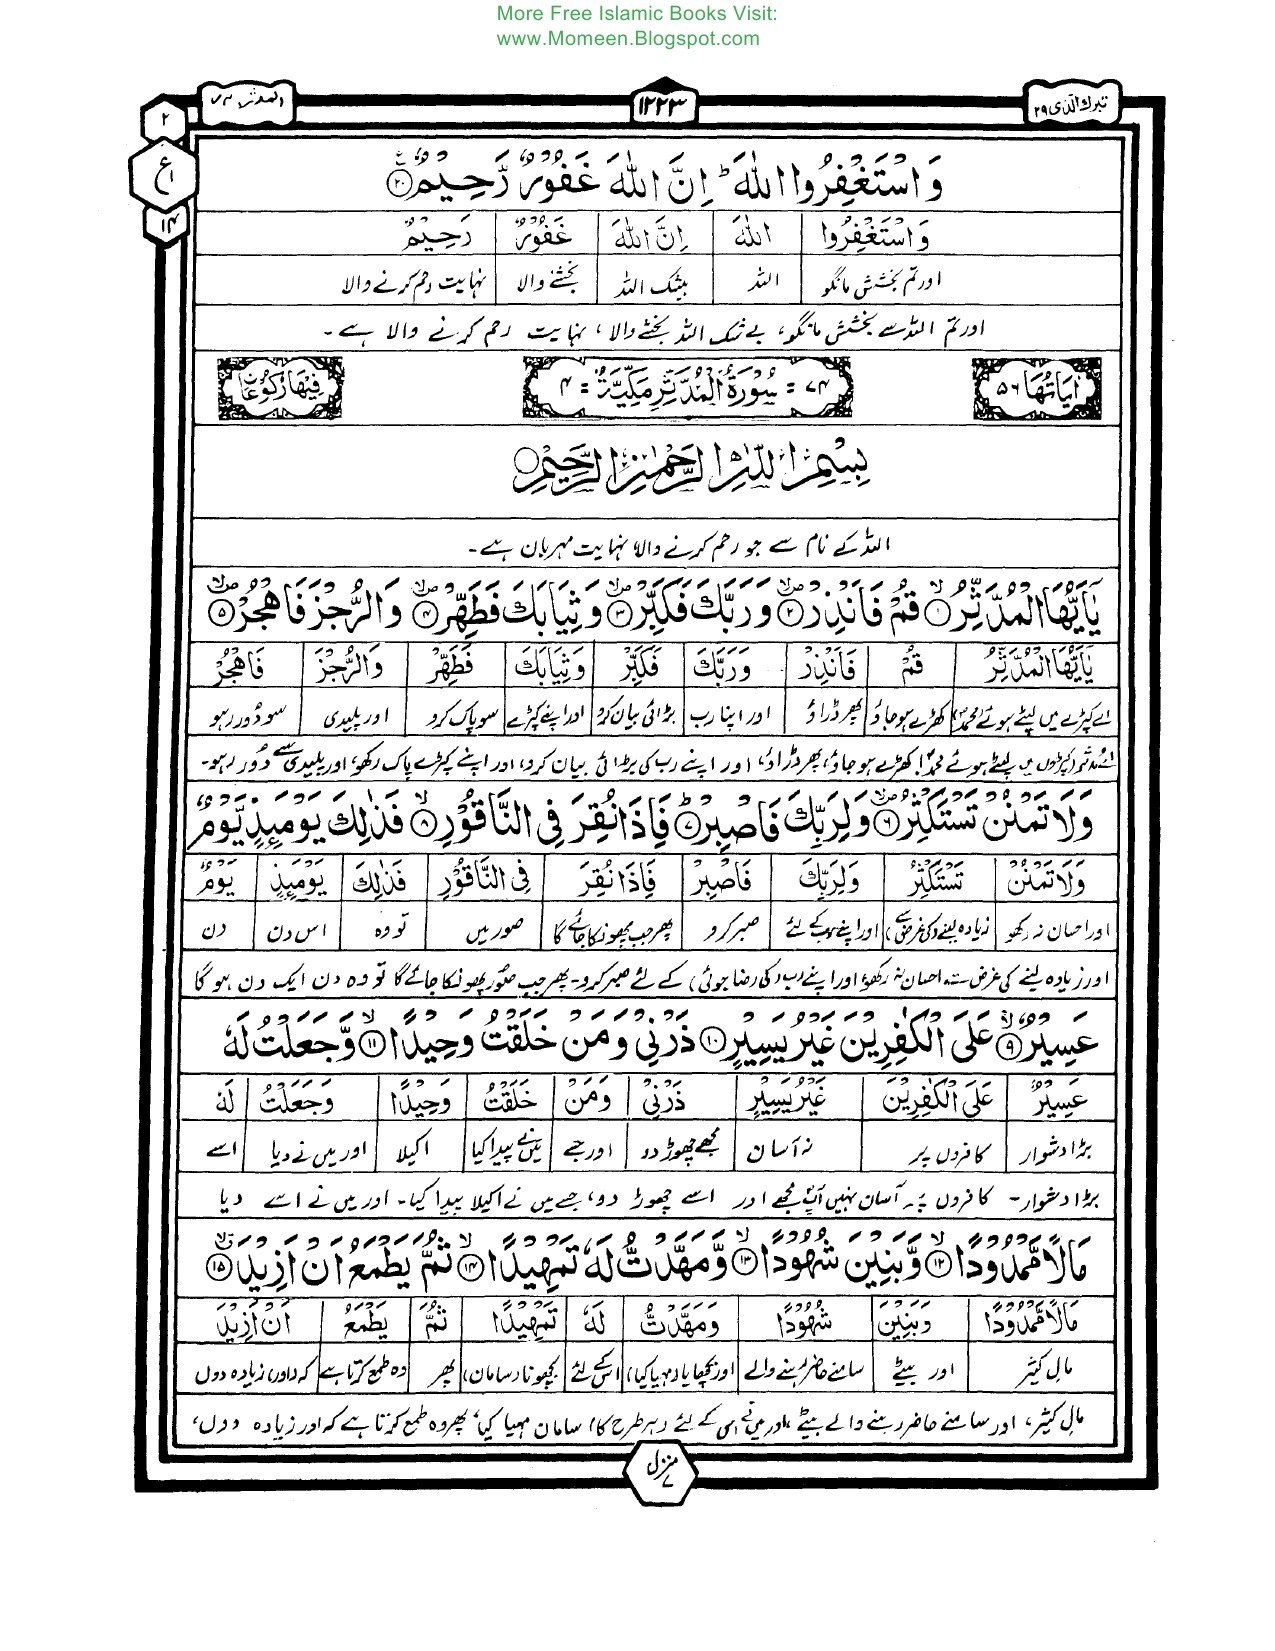 More Free Islamic Books Visit:
www.Momeen.Blogspot.com
تبرك الّذى ۲۹
۱۲۲۳
المدثر ۷۴
۲
ع
۱
۱۴
وَاسْتَغْفِرُوا اللّٰهَ ؕ اِنَّ اللّٰهَ غَفُوْرٌ رَّحِيْمٌ ۲۰
وَاسْتَغْفِرُوا | اللّٰهَ | اِنَّ اللّٰهَ | غَفُوْرٌ | رَحِيْمٌ
اور تم بخشش مانگو | اللہ | بیشک اللہ | بخشنے والا | نہایت رحم کرنے والا
اور تم اللہ سے بخشش مانگو، بے شک اللہ بخشنے والا، نہایت رحم کرنے والا ہے۔
اٰيَاتُهَا ۵۶
۷۴ = سُوْرَةُ الْمُدَّثِّرِ مَكِّيَّةٌ = ۴
فِيْهَا رُكُوْعَاتٌ
بِسْمِ اللّٰهِ الرَّحْمٰنِ الرَّحِيْمِ
اللہ کے نام سے جو رحم کرنے والا نہایت مہربان ہے۔
يٰۤاَيُّهَا الْمُدَّثِّرُ ۱ قُمْ فَاَنْذِرْ ۲ وَرَبَّكَ فَكَبِّرْ ۳ وَثِيَابَكَ فَطَهِّرْ ۴ وَالرُّجْزَ فَاهْجُرْ ۵
يٰۤاَيُّهَا الْمُدَّثِّرُ | قُمْ | فَاَنْذِرْ | وَرَبَّكَ | فَكَبِّرْ | وَثِيَابَكَ | فَطَهِّرْ | وَالرُّجْزَ | فَاهْجُرْ
اے کپڑے میں لپٹے ہوئے (محمدؐ) | کھڑے ہو جاؤ | پھر ڈراؤ | اور اپنا رب | بڑائی بیان کرو | اور اپنے کپڑے | سو پاک کرو | اور پلیدی | سو دُور رہو
(کپڑوں میں لپٹے ہوئے محمدؐ! کھڑے ہو جاؤ، پھر ڈراؤ، اور اپنے رب کی بڑائی بیان کرو، اور اپنے کپڑے پاک رکھو، اور پلیدی سے دُور رہو۔
وَلَا تَمْنُنْ تَسْتَكْثِرُ ۶ وَلِرَبِّكَ فَاصْبِرْ ۷ فَاِذَا نُقِرَ فِى النَّاقُوْرِ ۸ فَذٰلِكَ يَوْمَئِذٍ يَّوْمٌ
وَلَا تَمْنُنْ | تَسْتَكْثِرُ | وَلِرَبِّكَ | فَاصْبِرْ | فَاِذَا نُقِرَ | فِى النَّاقُوْرِ | فَذٰلِكَ | يَوْمَئِذٍ | يَوْمٌ
اور احسان نہ رکھو | زیادہ لینے (کی غرض سے) | اور اپنے رب کے لئے | صبر کرو | پھر جب پھونکا جائے گا | صور میں | تو وہ | اس دن | دن
اور زیادہ لینے کی غرض سے احسان نہ رکھو، اور اپنے رب (کی رضا جوئی) کے لئے صبر کرو۔ پھر جب صُور پھونکا جائے گا تو وہ دن ایک دن ہو گا
عَسِيْرٌ ۹ عَلَى الْكٰفِرِيْنَ غَيْرُ يَسِيْرٍ ۱۰ ذَرْنِىْ وَمَنْ خَلَقْتُ وَحِيْدًا ۱۱ وَّجَعَلْتُ لَهٗ
عَسِيْرٌ | عَلَى الْكٰفِرِيْنَ | غَيْرُ يَسِيْرٍ | ذَرْنِىْ | وَمَنْ | خَلَقْتُ | وَحِيْدًا | وَجَعَلْتُ | لَهٗ
بڑا دشوار | کافروں پر | نہ آسان | مجھے چھوڑ دو | اور جسے | میں نے پیدا کیا | اکیلا | اور میں نے دیا | اسے
بڑا دشوار۔ کافروں پر آسان نہیں آپؐ مجھے اور اسے چھوڑ دو، جسے میں نے اکیلا پیدا کیا۔ اور میں نے اسے دیا
مَالًا مَّمْدُوْدًا ۱۲ وَّبَنِيْنَ شُهُوْدًا ۱۳ وَّمَهَّدْتُّ لَهٗ تَمْهِيْدًا ۱۴ ثُمَّ يَطْمَعُ اَنْ اَزِيْدَ ۱۵
مَالًا مَّمْدُوْدًا | وَبَنِيْنَ | شُهُوْدًا | وَمَهَّدْتُّ | لَهٗ | تَمْهِيْدًا | ثُمَّ | يَطْمَعُ | اَنْ اَزِيْدَ
مال کثیر | اور بیٹے | سامنے حاضر رہنے والے | اور بچھایا (مہیا کیا) | اس کے لئے | بچھونا (سامان) | پھر | وہ طمع کرتا ہے | کہ (اور) زیادہ دوں
مال کثیر، اور سامنے حاضر رہنے والے بیٹے، اور میں نے اس کے لئے (ہر طرح کا) سامان مہیا کیا، پھر وہ طمع کرتا ہے کہ اور زیادہ دوں،
منزل
۷